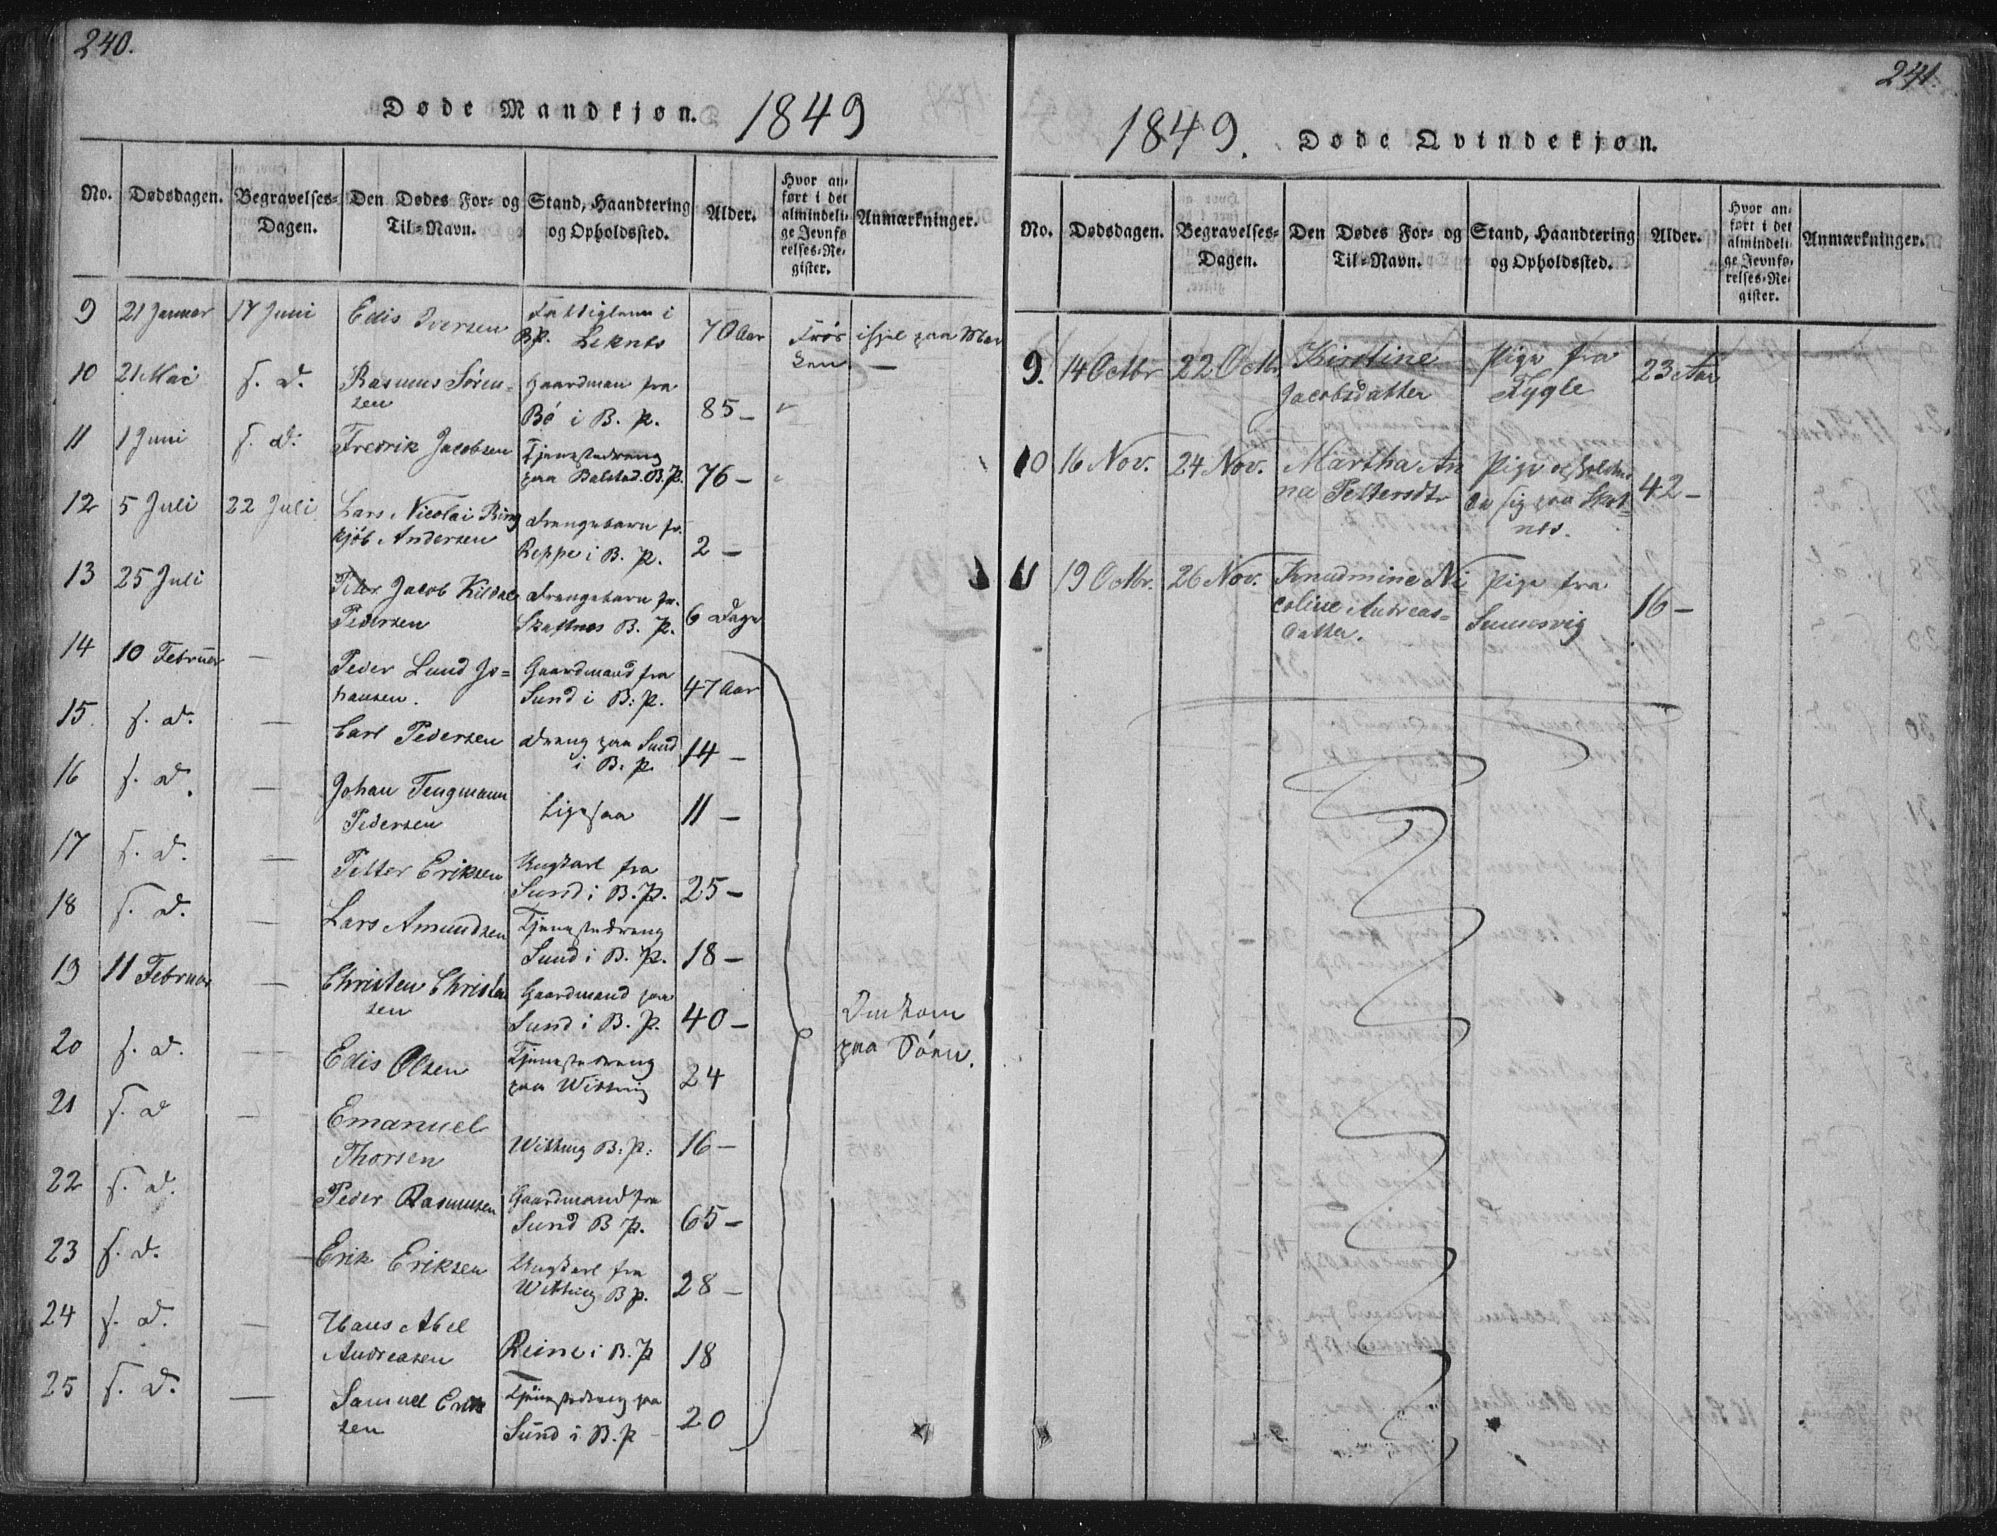 240.
Døde Mandkjøn. 1849
No. Dødsdagen. Begravelses-Dagen. Den Dødes For- og Til-Navn. Stand, Haandtering og Opholdssted. Alder. Hvor anført i det almindelige Jevnførelses-Register. Anmærkninger.
9 21 Januar 17 Juni Edis Iversen Fattiglem i
B.p. Leknes 70 Aar
10 21 Mai s. d. Rasmus Søren-
sen Gaardman fra
Bø i B. p. 85 –
11 1 Juni s. d. Fredrik Jacobsen Tjenestedreng
paa Balstad. B. p. 76 –
12 5 Juli 22 Juli Lars Nicolai Bing
kjøb Andersen Drengebarn fr.
Reppe i B. p. 2 –
13 25 Juli Peter Jacob Kildal
Pedersen Drengebarn fr.
Skattnes B. p. 6 Dage
14 10 Februar – Peder Lund Jo-
hansen. Gaardmand fra
Sund i B. p. 47 Aar
15. s. d. – Carl Pedersen Dreng paa Sund
i B. p. 14 –
16 s. d. – Johan Tengmann
Pedersen Ligesaa 11 –
17 s. d. – Petter Eriksen Ungkarl fra
Sund i B. p. 25 –
18 s. d. – Lars Amundsen Tjenestedreng
Sund i B. p. 18 –
19 11 Februar – Christen Christen
sen Gaardmand paa
Sund i B. p. 40 – Omkom
paa Søen.
20 s. d. – Edis Olsen Tjenestedreng
paa 24
21 s. d – Emanuel
Thorsen B. p. 16 –
22 s. d. Peder Rasmusen Gaardmand fra
Sund B. p. 65 –
23 s. d. – Erik Eriksen Ungkarl fra
B p. 28 –
24 s. d. – Hans Abel
Andreasen Reine i B. p 18
25 s. d. – Samuel Erik
sen Tjenestedreng paa
Sund i B. p 20
241.
1849. Døde Qvindekjøn.
No. Dødsdagen. Begravelses-Dagen. Den Dødes For- og Til-Navn. Stand, Haandtering og Opholdssted. Alder. Hvor anført i det almindelige Jevnførelses-Register. Anmærkninger.
9. 14 Octbr 22 Octbr Kirstine
Jacobsdatter Pige fra
Fygle 23 Aar
10 16 Nov. 24 Nov. Martha An
na Pettersdtr Pige
sig paa Skot-
nes. 42 –
11 19 Octbr. 26 Nov. Knudmine Ni
coline Andreas-
datter. Pige fra
16 –